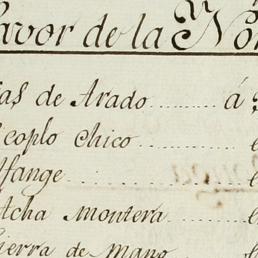 avor de la No
as de Arado ........ á
coplo chico ........
lfange ........
tcha montera ........
ierra de Mano